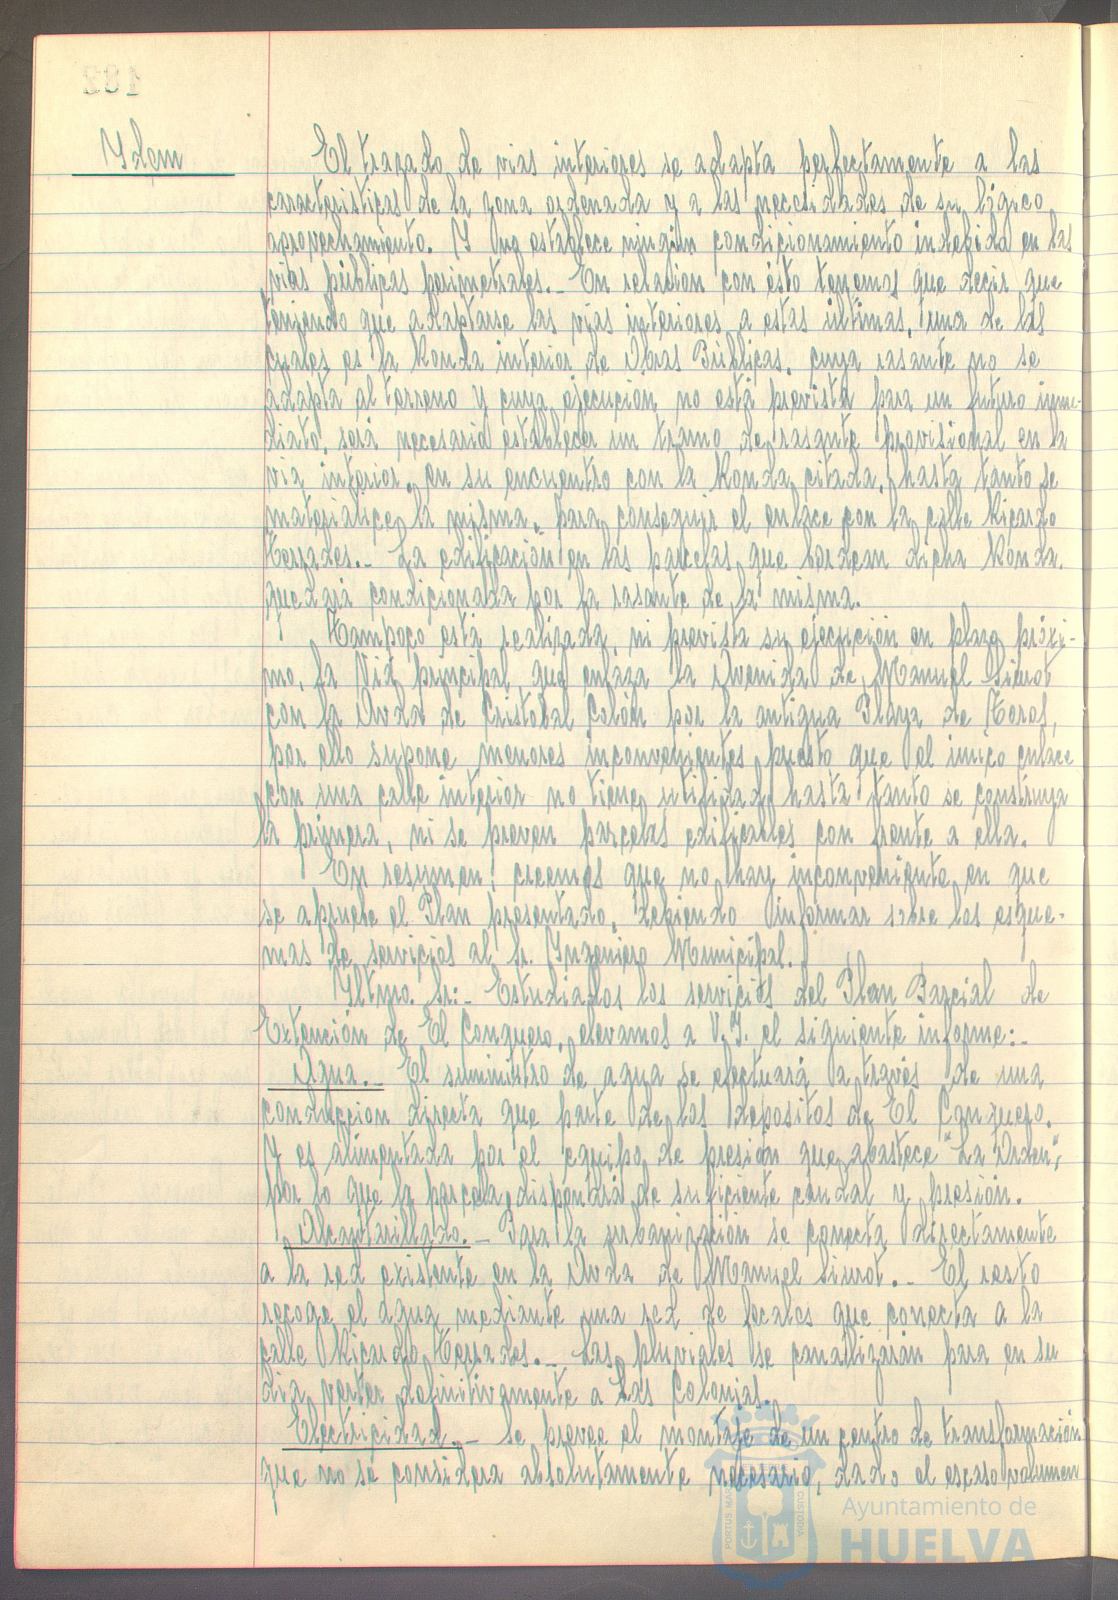 182
Idem
El trazado de vias interiores se adapta perfectamente a las
caracteristicas de la zona ordenada y a las necesidades de su lógico
aprovechamiento. Y no establece ningún condicionamiento indebido en las
vias públicas perimetrales.- En relación con ésto tenemos que decir que
teniendo que adaptarse las vias interiores a estas últimas, una de las
cuales es la Ronda interior de Obras Públicas, cuya rasante no se
adapta al terreno y cuya ejecución no está prevista para un futuro inme-
diato, será necesario establecer un tramo de rasante provisional en la
via interior, en su encuentro con la Ronda citada, hasta tanto se
materialice la misma, para conseguir el enlace con la calle Ricardo
Terrades.- La edificación en las parcelas que bordean dicha Ronda,
quedará condicionada por la rasante de la misma.
Tampoco está realizada, ni prevista su ejecución en plazo próxi-
mo, la Via principal que enlaza la Avenida de Manuel Siurot
con la Avda de Cristobal Colón por la antigua Plaza de Toros,
por ello supone menores inconvenientes puesto que el único enlace
con una calle interior no tiene utilidad hasta tanto se construya
la primera, ni se preven parcelas edificables con frente a ella.
En resumen: creemos que no hay inconveniente en que
se apruebe el Plan presentado, debiendo informar sobre los esque-
mas de servicios al Sr. Ingeniero Municipal.
Iltmo. Sr:- Estudiados los servicios del Plan Parcial de
Extención de El Conquero, elevamos a V.I. el siguiente informe:-
Agua.- El suministro de agua se efectuará a través de una
conduccion directa que parte de los depositos de El Conquero.
Y es alimentada por el equipo de presión que abastece "La Orden",
por lo que la parcela dispondrá de suficiente caudal y presión.
Alcantarillado.- Para la urbanización se conecta directamente
a la red existente en la Avda de Manuel Siurot.- El resto
recoge el agua mediante una red de fecales que conecta a la
calle Ricardo Terrades.- Las pluviales se canalizarán para en su
dia verter definitivamente a Las Colonias.
Electricidad.- Se prevee el montaje de un centro de transformación
que no se considera absolutamente necesario, dado el escaso volumen
PORTUS MARIS
CUSTODIA
Ayuntamiento de
HUELVA